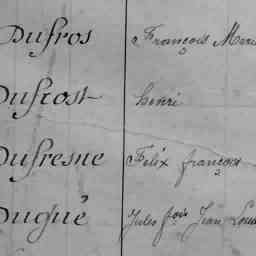 Dufros François Marie
Dufrost Henri
Dufresne Felix françois
Dugué Jules fois Jean Louis